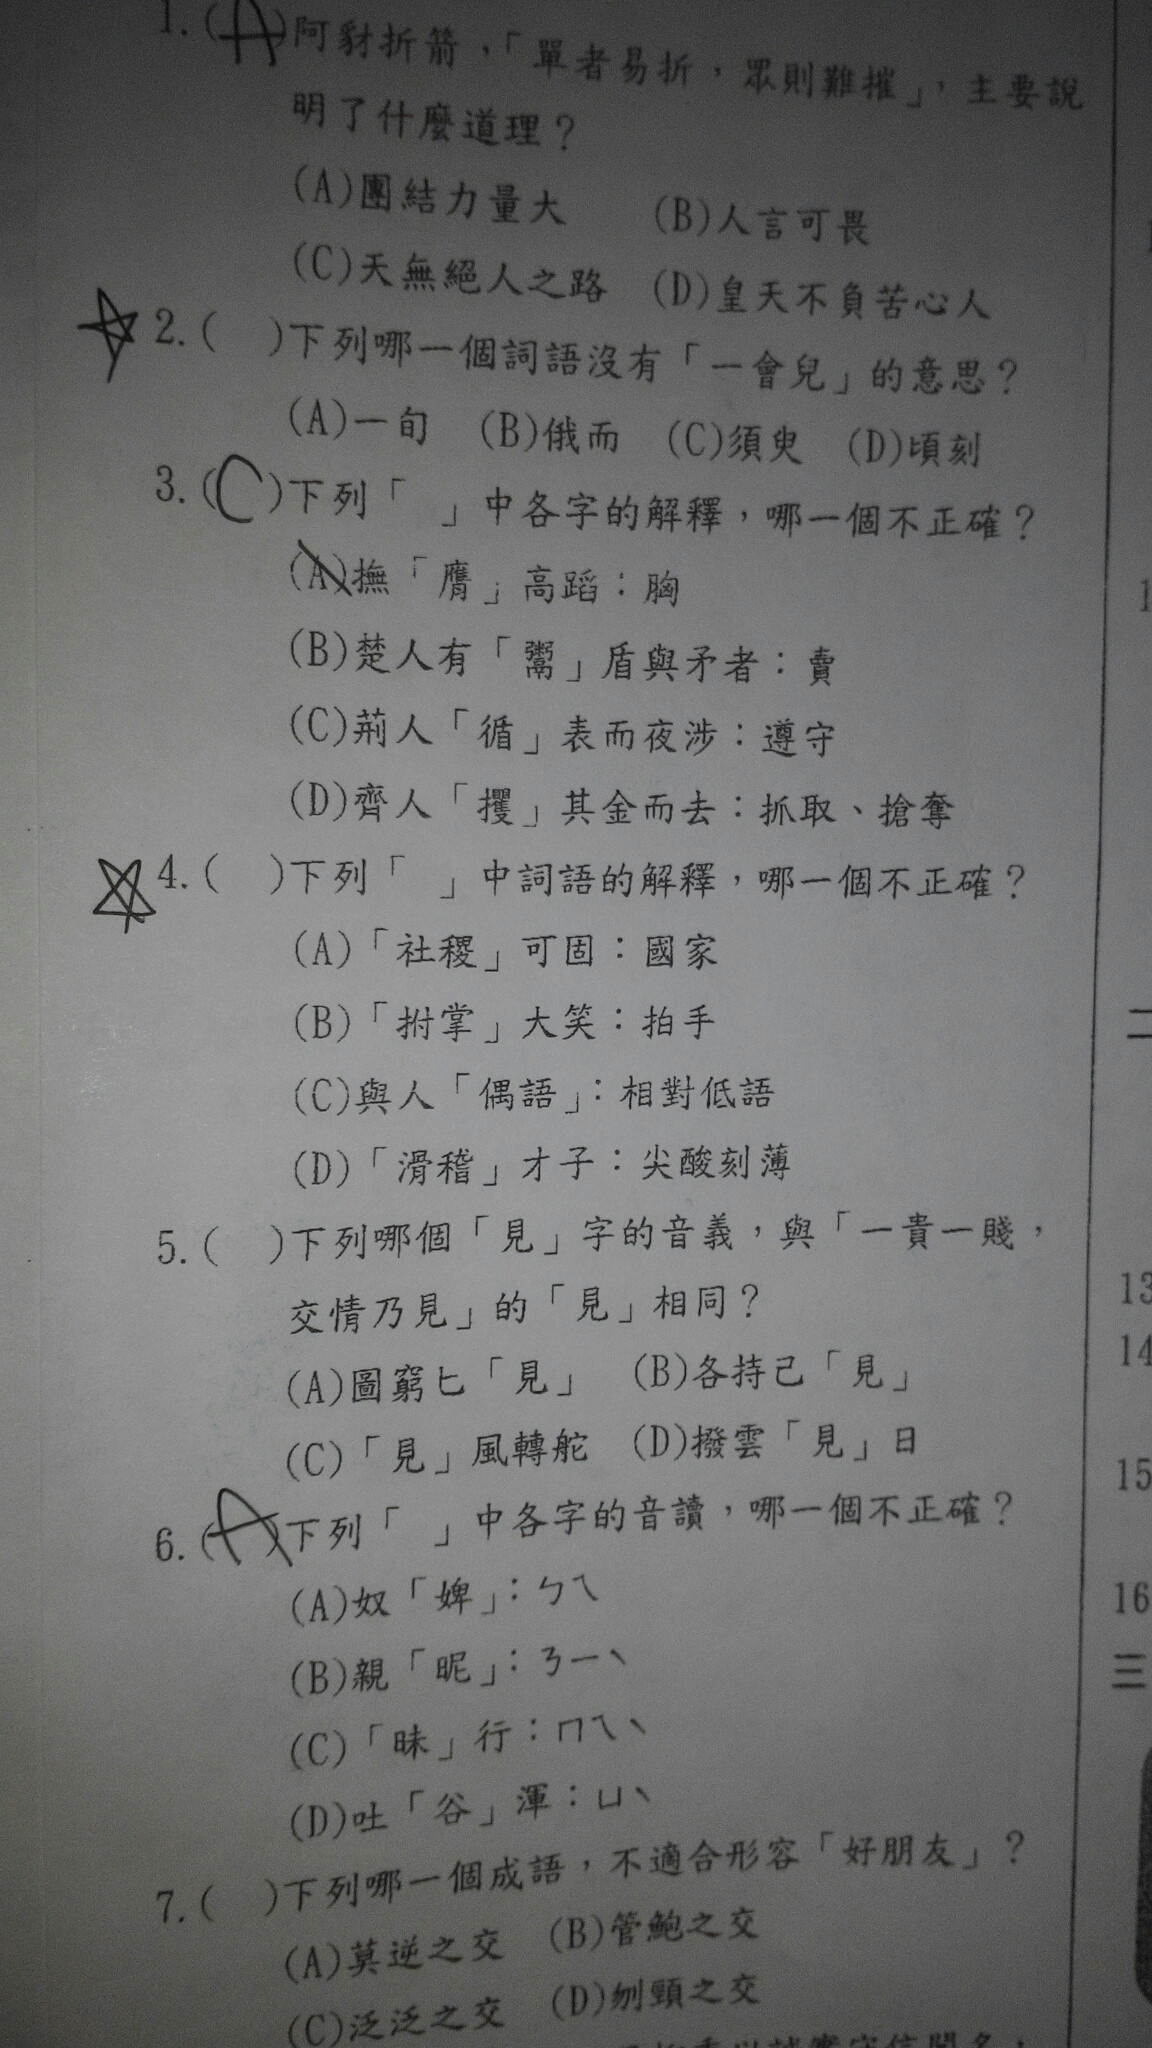 1.(A)阿豺折箭，「單者易折，眾則難摧」，主要說
明了什麼道理？
(A)團結力量大 (B)人言可畏
(C)天無絕人之路 (D)皇天不負苦心人
2.( )下列哪一個詞語沒有「一會兒」的意思？
(A)一旬 (B)俄而 (C)須臾 (D)頃刻
3.(C)下列「 」中各字的解釋，哪一個不正確？
(A)撫「膺」高蹈：胸
(B)楚人有「鬻」盾與矛者：賣
(C)荊人「循」表而夜涉：遵守
(D)齊人「攫」其金而去：抓取、搶奪
4.( )下列「 」中詞語的解釋，哪一個不正確？
(A)「社稷」可固：國家
(B)「拊掌」大笑：拍手
(C)與人「偶語」：相對低語
(D)「滑稽」才子：尖酸刻薄
5.( )下列哪個「見」字的音義，與「一貴一賤，
交情乃見」的「見」相同？
(A)圖窮匕「見」 (B)各持己「見」
(C)「見」風轉舵 (D)撥雲「見」日
6.(A)下列「 」中各字的音讀，哪一個不正確？
(A)奴「婢」：ㄅㄟ
(B)親「昵」：ㄋㄧˋ
(C)「昧」行：ㄇㄟˋ
(D)吐「谷」渾：ㄩˋ
7.( )下列哪一個成語，不適合形容「好朋友」？
(A)莫逆之交 (B)管鮑之交
(C)泛泛之交 (D)刎頸之交
1
二
13
14
15
16
三